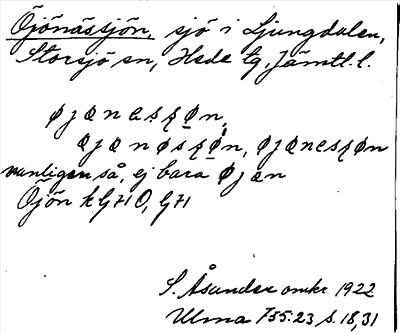 Öjönässjön, sjö i Ljungdalen,
Storsjö sn, Hede tg, Jämtl. l.
øjønesʂøn,
øjønøsʂøn, øjønesʂøn
vanligen så, ej bara øjøn
Öjön
S. Åsander omkr. 1922
Ulma 755:23 s. 18, 31